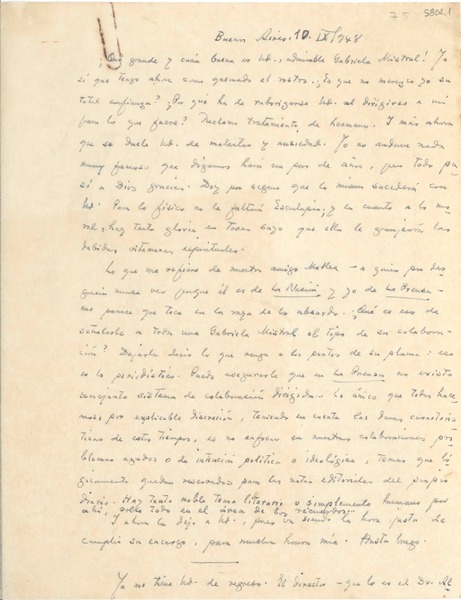 75 5802.1
Buenos Aires, 10. IX/948
¡Qué grande y cuán buena es Ud., admirable Gabriela Mistral! Yo
sí que tengo ahora como quemado el rostro. ¿Es que no merezco yo su
total confianza? ¿Por qué ha de ruborizarse Ud. al dirigirse a mí
para lo que fuere? Reclamo tratamiento de hermano. Y más ahora
que se duele Ud. de malestar y ansiedad. Yo no anduve nada
muy famoso que digamos hará un par de años, pero todo pa-
só a Dios gracias. Doy por seguro que lo mismo sucederá con
Ud. Para lo físico no le faltará Esculapio, y en cuanto a lo mo-
ral, hay tanta gloria en torno suyo que ella le granjeará las
debidas vitaminas espirituales.
Lo que me refiere de nuestro amigo Mallea — a quien por des-
gracia nunca veo porque él es de La Nación y yo de La Prensa —
me parece que toca en la raya de lo absurdo. ¿Qué es eso de
señalarle a toda una Gabriela Mistral el tipo de su colabora-
ción? Dejarla decir lo que venga a los puntos de su pluma: eso
es lo periodístico. Puedo asegurarle que en La Prensa no existe
semejante sistema de colaboración dirigida. Lo único que todos hace-
mos por explicable discreción, teniendo en cuenta las
tivas de estos tiempos, es no enfocar en nuestras colaboraciones pro-
blemas azados o de intención política o ideológica, temas que ló-
gicamente quedan reservados para las notas editoriales del propio
diario. Hay tanto noble tema literario o simplemente humano por
ahí, sobre todo en el área de los recuerdos!
Y ahora la dejo a Ud., pues va siendo la hora justa de
cumplir su encargo, para mucha honra mía. Hasta luego.
Ya me tiene Ud. de regreso. El director — que lo es el Dr. Al-